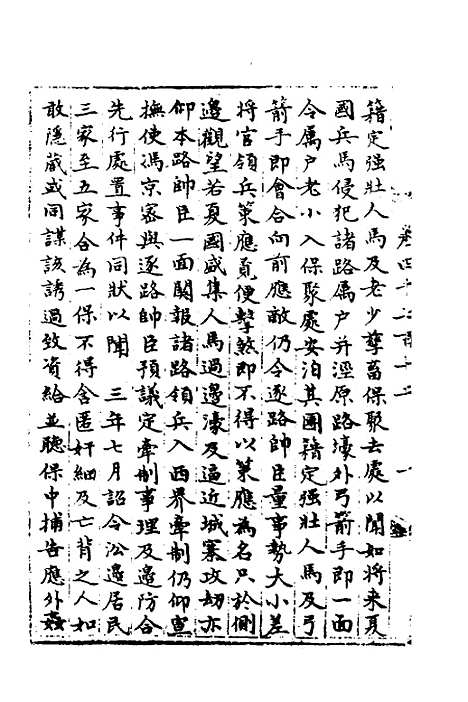 籍定强壮人馬及老少孳畜保聚去處以聞如將來夏
國兵馬侵犯諸路属户并涇原路濠外弓箭手即一面
令属户老小入保聚處安泊其團籍定强壮人馬及弓
箭手即會合向前應敵仍令逐路帥臣量事勢大小差
將官領兵策應覓便擊煞即不得以策應為名只於側
邊觀望若夏國盛集人馬過邊濠及逼近城寨攻刼亦
仰本路帥臣一面関報諸路領兵入西界牽制仍仰宣
撫使馮京密與逐路帥臣預議定牽制事理及邊防合
先行處置事件同狀以聞　三年七月詔令沿邊居民
三家至五家合為一保不得舍匿奸細及亡背之人如
敢隱藏或同謀該誘過致資給並聽保中捕告應外姦